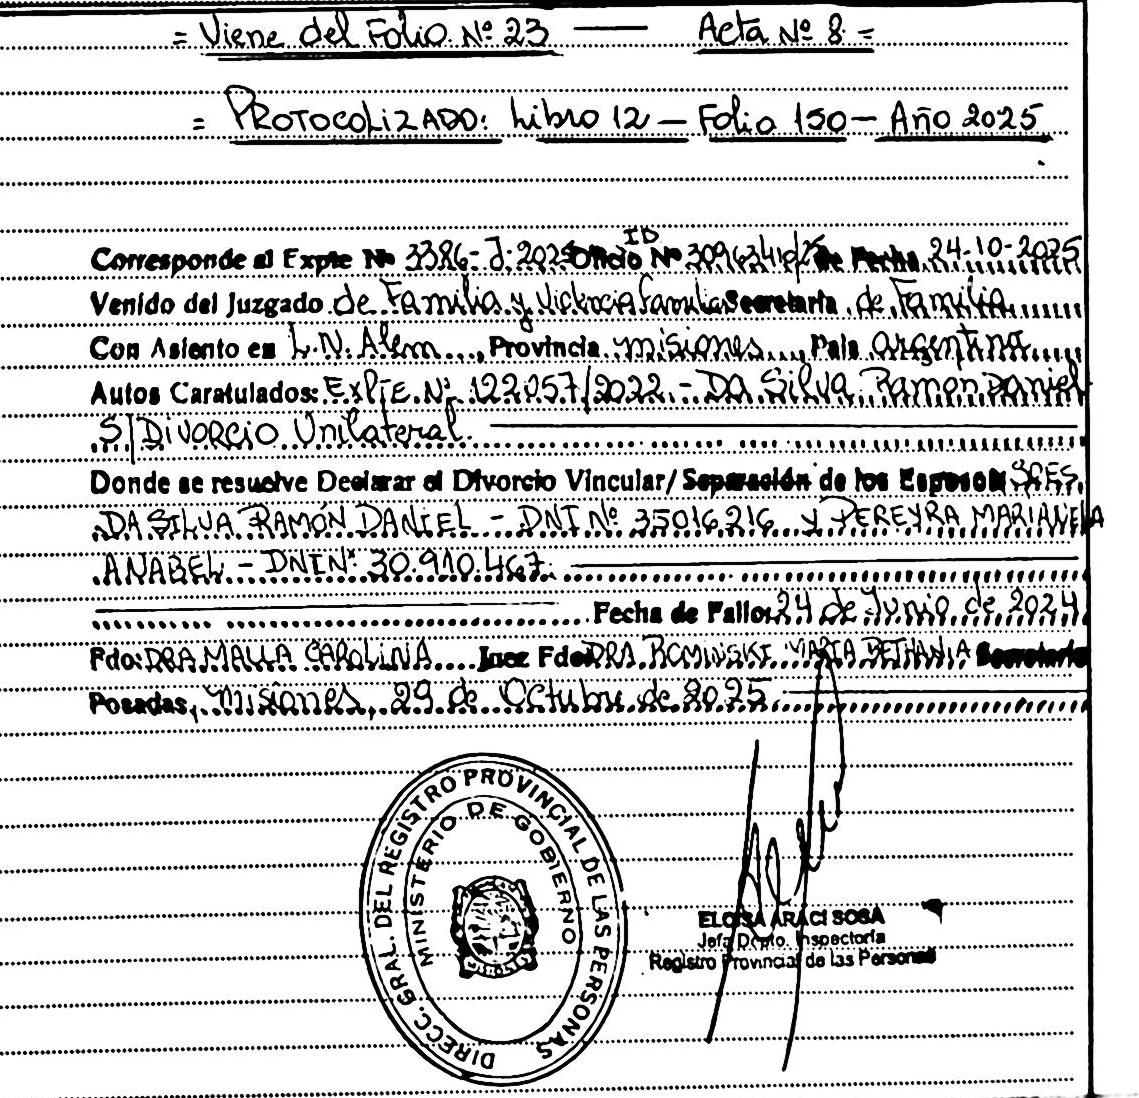 = Viene del Folio Nº 23 — Acta Nº 8 =
= PROTOCOLIZADO: Libro 12 — Folio 150 — Año 2025
ID
Corresponde al Expte Nº 3386-J-2025 Oficio Nº 30963410/25 de Fecha 24-10-2025
Venido del Juzgado de Familia y Violencia familiar Secretaría de Familia
Con Asiento en L.N. Alem, Provincia misiones, País argentina
Autos Caratulados: EXPTE. Nº 122057/2022. - DA SILVA Ramon Daniel
S/ DIVORCIO Unilateral.
Donde se resuelve Declarar el Divorcio Vincular/ Separación de los Esposos SRES.
DA SILVA RAMÓN DANIEL - DNI Nº 35016216 y PEREYRA MARIANELA
ANABEL - DNI Nº 30.910.467.
Fecha de Fallo: 24 de Junio de 2024
Fdo: DRA MALLA CAROLINA Juez Fdo: DRA. ROMINSKI MARIA BETHANIA Secretaria
Posadas, Misiones, 29 de Octubre de 2025.
DIRECC. GRAL. DEL REGISTRO PROVINCIAL DE LAS PERSONAS
MINISTERIO DE GOBIERNO
ELOISA ARACI SOSA
Jefa Dpto. Inspectoría
Registro Provincial de las Personas